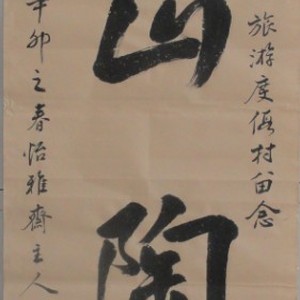 旅游度假村留念
山陶
辛卯之春怡雅斋主人